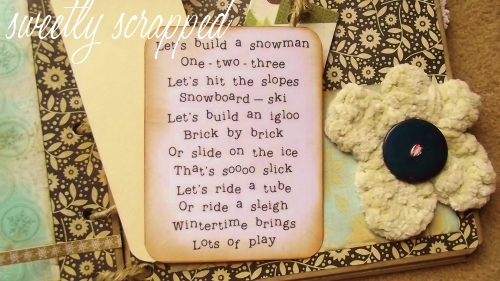 sweetly scrapped
Let's build a snowman
One-two-three
Let's hit the slopes
Snowboard - ski
Let's build an igloo
Brick by brick
Or slide on the ice
That's soooo slick
Let's ride a tube
Or ride a sleigh
Wintertime brings
Lots of play